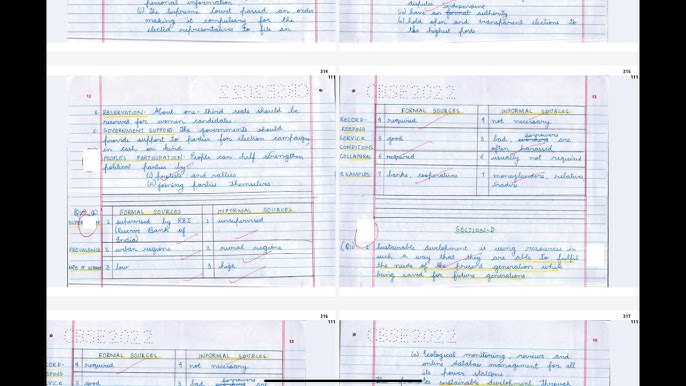 personal information
(v) The Supreme Court passed an order
making it compulsory for the
elected representatives to file an
disputes independent
(v) have an formal authority
(vi) hold open and transparent elections to
the highest posts
314
111
315
111
12
CBSE2022
13
5. RESERVATION: About one-third seats should be
reserved for women candidates.
6. GOVERNMENT SUPPORT: The governments should
provide support to parties for election campaigns
in cash or kind.
PEOPLE'S PARTICIPATION: People can help strengthen
political parties by
(i) protests and rallies
(ii) joining parties themselves
FORMAL SOURCES
INFORMAL SOURCES
1 supervised by RBI
(Reserve Bank of
India)
1 unsupervised
PREVALENCE
2 urban regions
2 rural regions
3 low
3 high
FORMAL SOURCES
INFORMAL SOURCES
RECORD-
KEEPING
4 required
4 not necessary
SERVICE
CONDITIONS
5 good
5 bad borrowers are
often harassed
COLLATERAL
6 required
6 usually not required
EXAMPLES
7 banks, cooperatives
7 moneylenders, relatives
traders
SECTION-D
Sustainable development is using resources in
such a way that they are able to fulfil
the needs of the present generation while
being saved for future generations
316
111
317
111
CBSE2022
15
FORMAL SOURCES
INFORMAL SOURCES
RECORD-
KEEPING
4 required
4 not necessary
SERVICE
5 good
5 bad are
(a) Ecological monitoring, reviews and
online database management for all
its power stations.
sustainable development through